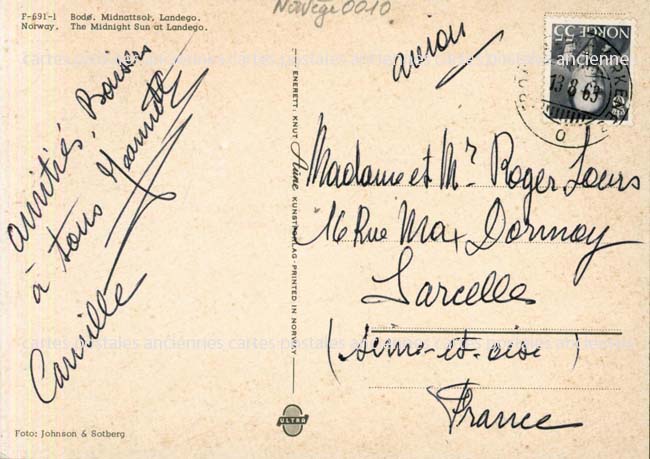 F-691-1 Bodø. Midnattsol, Landego.
Norway. The Midnight Sun at Landego.
Norvège0010
avion
NORGE 55
13 8 63
amitiés, Baisers
à tous Jeannette
Camille
ENERETT: KNUT Aune KUNSTFORLAG - PRINTED IN NORWAY
Madame et Mr Roger Jours
16 Rue Max Dormoy
Sarcelles
(Seine-et-oise)
France
cartes postales anciennes cartes postales anciennes cartes postales anciennes
cartes postales anciennes cartes postales anciennes cartes postales anciennes
ULTRA
Foto: Johnson & Sotberg